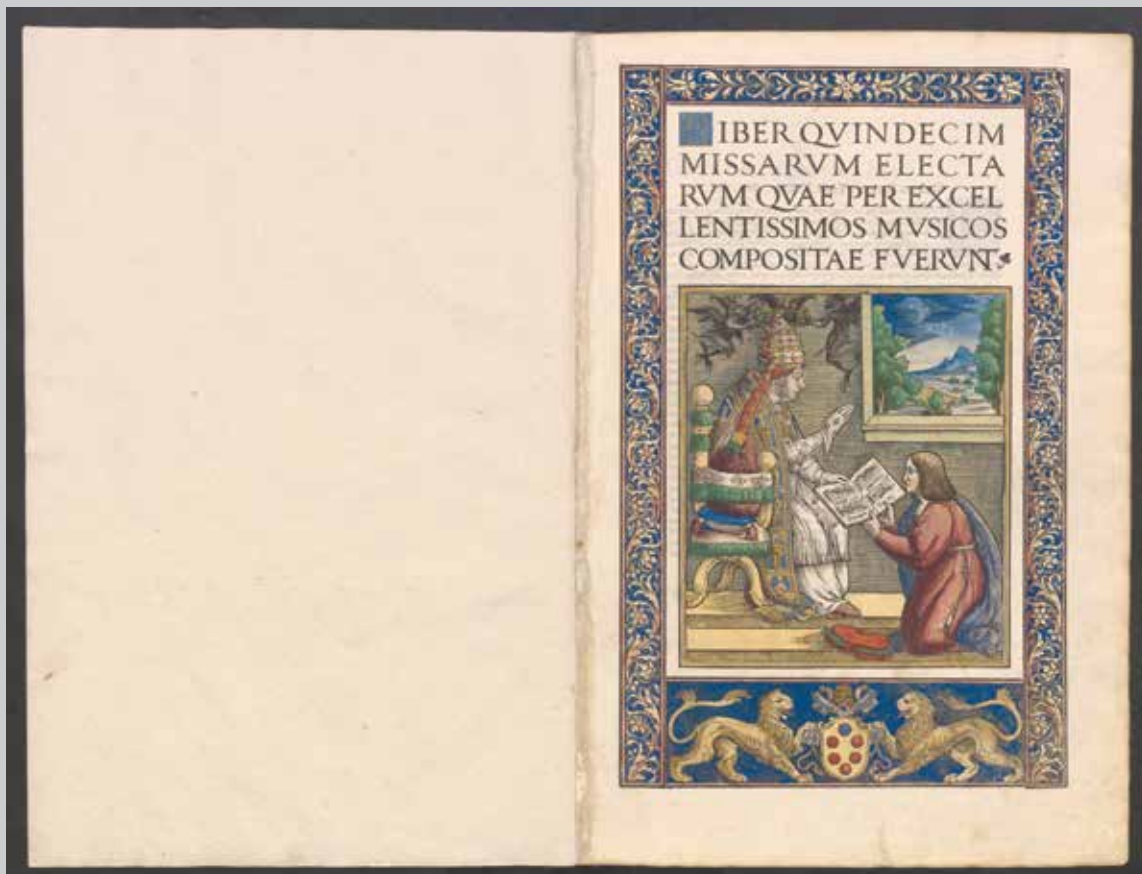 LIBER QVINDECIM
MISSARVM ELECTA
RVM QVAE PER EXCEL
LENTISSIMOS MVSICOS
COMPOSITAE FVERVNT